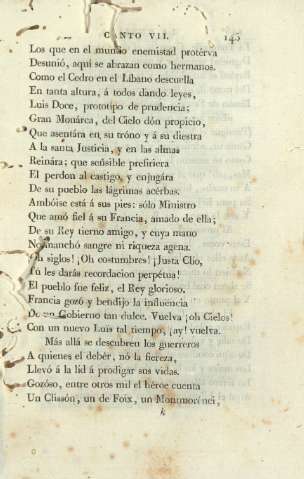 CANTO VII. 145
Los que en el mundo enemistad protérva
Desunió, aquí se abrazan como hermanos.
Como el Cedro en el Líbano descuella
En tanta altura, á todos dando leyes,
Luis Doce, prototipo de prudencia;
Gran Monárca, del Cielo dón propicio,
Que asentára en su tróno y á su diestra
A la santa Justicia, y en las almas
Reinára; que señsible prefiriera
El perdon al castigo, y enjugára
De su pueblo las lágrimas acérbas.
Ambóise está á sus pies: sólo Ministro
Que amó fiel á su Francia, amado de ella;
De su Rey tierno amigo, y cuya mano
No manchó sangre ni riqueza agena.
Oh siglos! ¡Oh costumbres! ¡Justa Clio,
Tú les darás recordacion perpétua!
El pueblo fue feliz, el Rey glorioso.
Francia gozó y bendijo la influencia
De un Gobierno tan dulce. Vuelva ¡oh Cielos!
Con un nuevo Luis tal tiempo, ¡ay! vuelva.
Más allá se descubren los guerreros
A quienes el debér, nó la fiereza,
Llevó á la lid á prodigar sus vidas.
Gozóso, entre otros mil el héroe cuenta
Un Clissón, un de Foix, un Montmorénci,
k